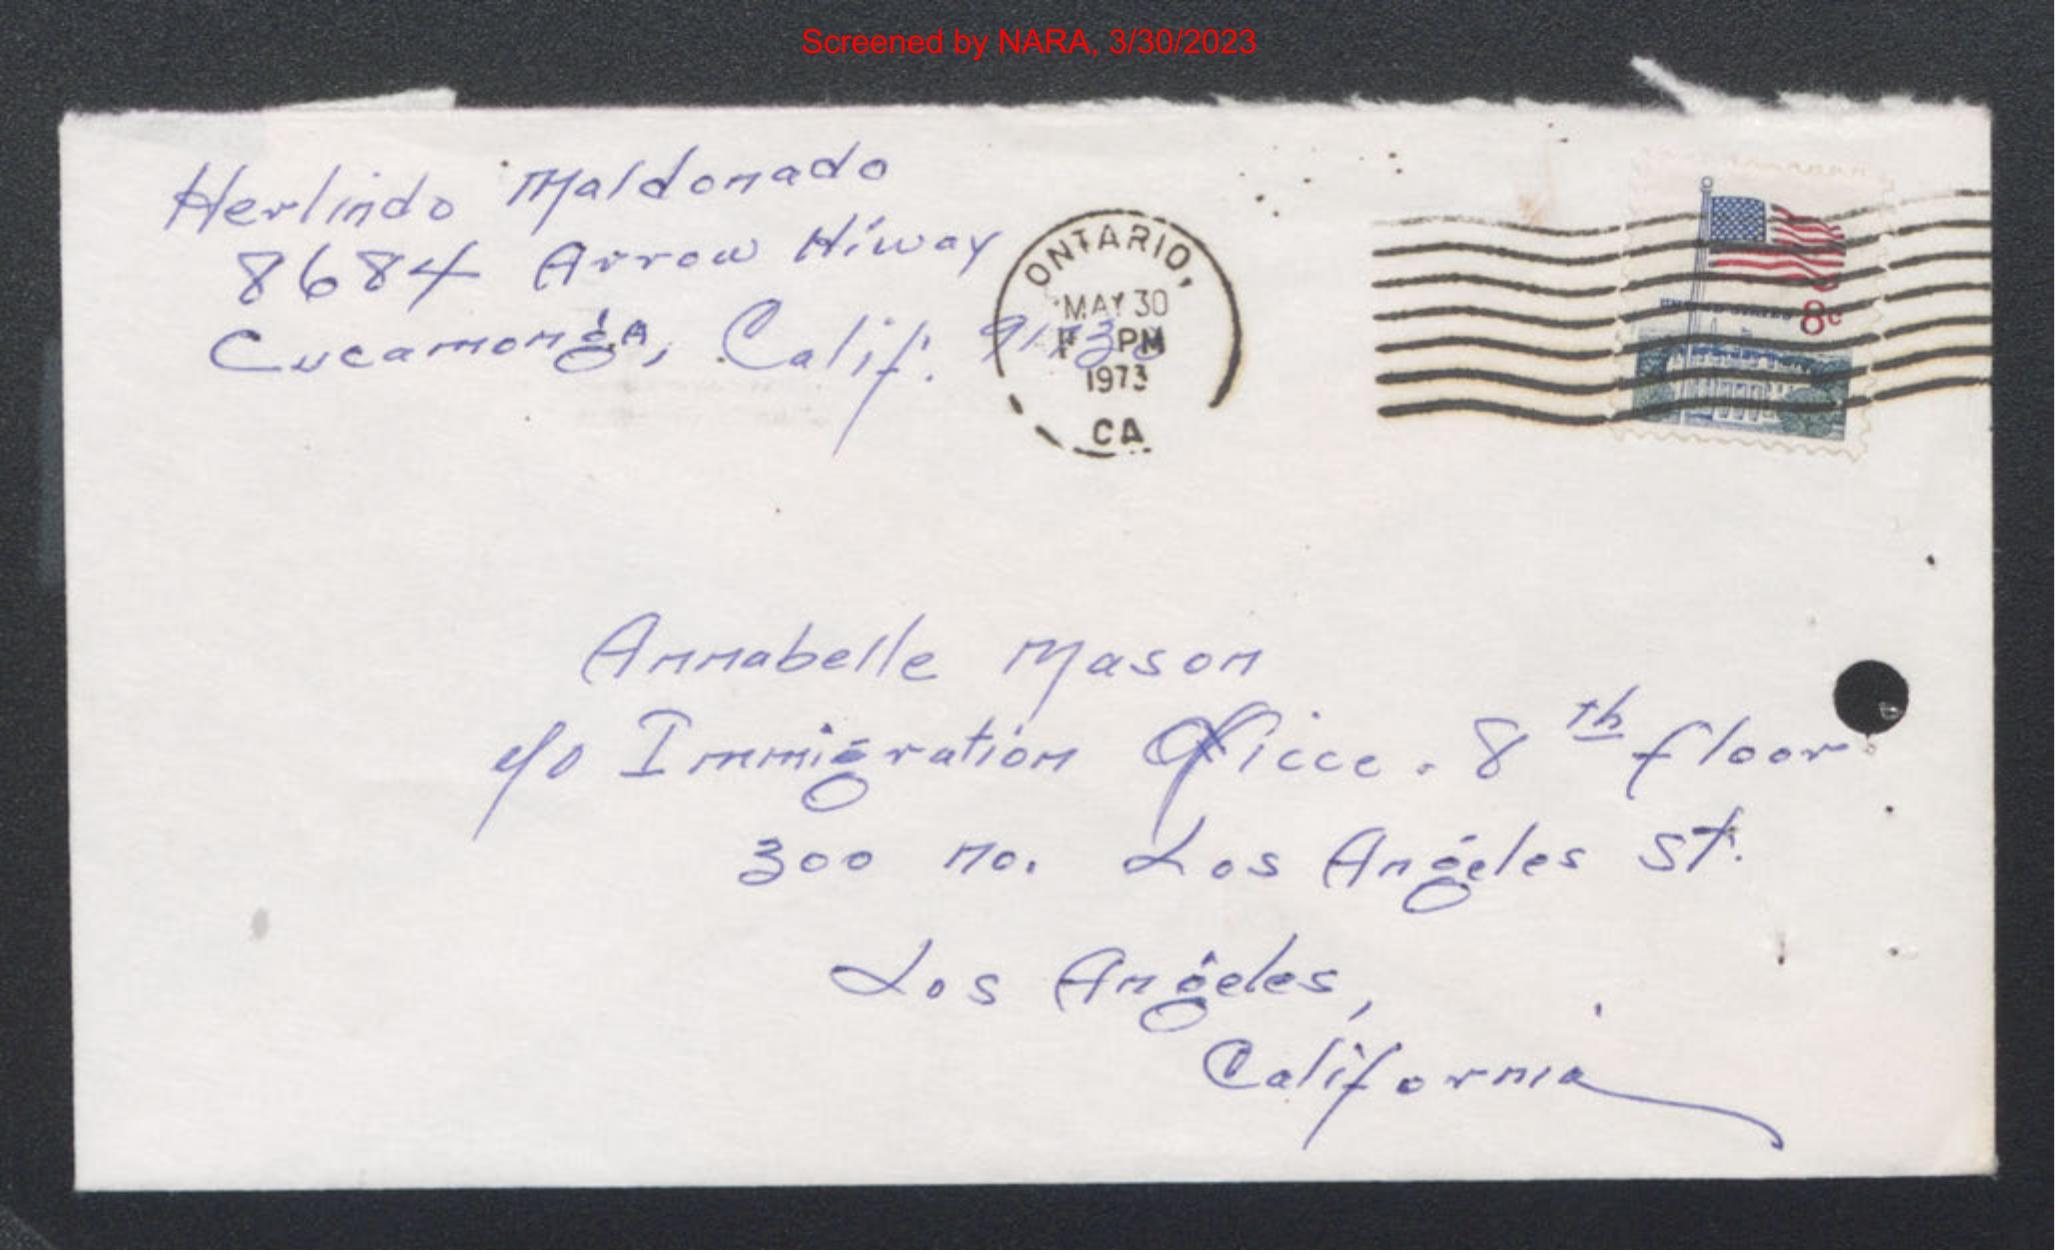 Screened by NARA, 3/30/2023
Herlindo Maldonado
8684 Arrow Hiway
Cucamonga, Calif.
ONTARIO,
MAY 30
PM
1973
CA
8c
Annabelle Mason
c/o Immigration Officce. 8th floor
300 no. Los Angeles St.
Los Angeles,
California